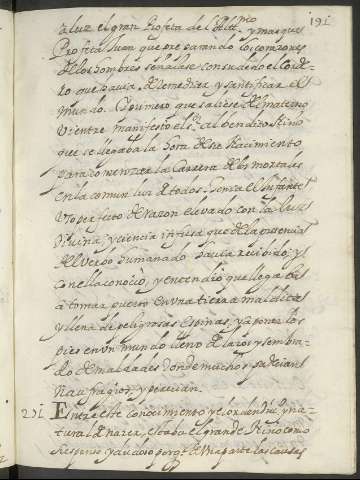 191
a luz el gran Profeta del Altmo y mas que
Profeta Juan que preparando los corazones
de los hombres señalase con su dedo el Corde-
ro que havia de remediar y santificar el
mundo. Y primero que saliese del materno
vientre manifesto el Sr. al bendito Niño
que se llegaba la hora de su Nacimiento
para comenzar la carrera de los mortales
en la comun luz de todos. Tenia el Infante
uso perfecto de razon elevado con la luz
Divina, y ciencia infusa que de la presencia
del Verbo humanado havia recibido, y
con ella conocio, y entendio que llegaba
a tomar puerto en una tierra maldita
y llena de peligrosas espinas, y a poner los
pies en un mundo lleno de lazos y sembra-
do de maldades donde muchos padecian
Naufragio, y perecian.
291 Entre este conocimiento y el orden divino y na-
tural de nacer, estaba el grande Niño como
suspenso y dudoso porq. de una parte las causas